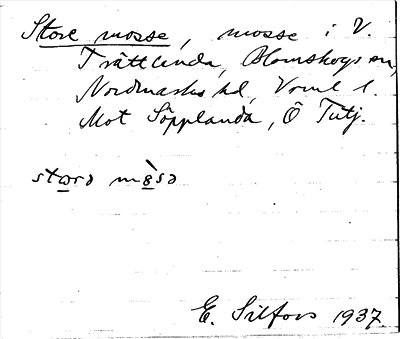 Store mosse, mosse i V.
Trättlinda, Blomskogs sn,
Nordmarks hd, Vrml l.
Mot Söpplanda, Ö Tutj.
E. Silfors 1937.